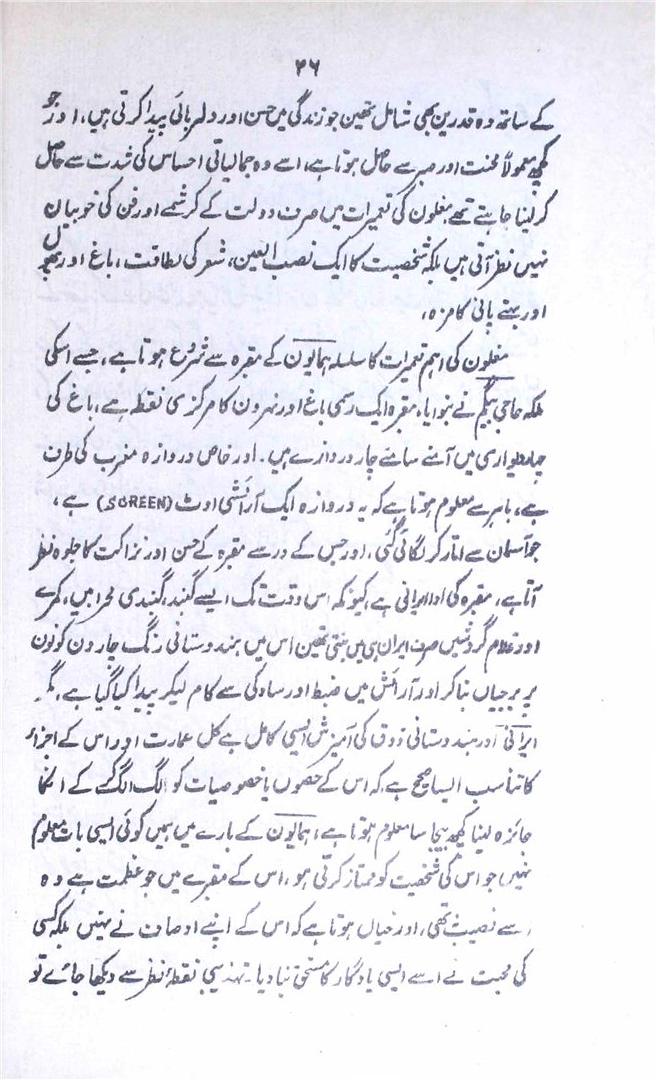 ۴۶
کے ساتھ وہ قدرین بھی شامل تھین جو زندگی میں حسن اور دلربائی پیدا کرتی ہیں، اور جو
کچھ معمولاً محنت اور صبر سے حاصل ہوتا ہے، اسے وہ جمالیاتی احساس کی شدت سے حاصل
کر لینا چاہتے تھے، مغلون کی تعمیرات میں صرف دولت کے کرشمے اور فن کی خوبیان
نہیں نظر آتی ہیں بلکہ شخصیت کا ایک نصب العین، شعر کی لطافت، باغ اور پھول
اور بہتے پانی کا مزہ،
مغلون کی اہم تعمیرات کا سلسلہ ہمایون کے مقبرہ سے شروع ہوتا ہے، جسے اسکی
ملکہ حاجی بیگم نے بنوایا، مقبرہ ایک رسمی باغ اور نہرون کا مرکزی نقطہ ہے، باغ کی
چہار دیواری میں آمنے سامنے چار دروازے ہیں۔ اور خاص دروازہ مغرب کی طرف
ہے، باہر سے معلوم ہوتا ہے کہ یہ دروازہ ایک آرائشی اوٹ (SCREEN) ہے،
جو آسمان سے اتار کر لگائی گئی، اور جس کے در سے مقبرہ کے حسن اور نزاکت کا جلوہ نظر
آتا ہے، مقبرہ کی ادا ایرانی ہے، کیونکہ اس وقت تک ایسے گنبد، گنبدی محرابیں، کمرے
اور غلام گردشیں صرف ایران ہی میں بنتی تھین اس میں ہندوستانی رنگ چارون کونون
پر برجیاں بنا کر اور آرائش میں ضبط اور سادگی سے کام لیکر پیدا کیا گیا ہے، مگر
ایرانی اور ہندوستانی ذوق کی آمیزش ایسی کامل ہے کل عمارت اور اس کے اجزاء
کا تناسب ایسا صحیح ہے کہ اس کے حصوں یا خصوصیات کو الگ الگ کر کے ان کا
جائزہ لینا کچھ بیجا سا معلوم ہوتا ہے، ہمایون کے بارے میں ہمیں کوئی ایسی بات معلوم
نہیں جو اس کی شخصیت کو ممتاز کرتی ہو، اس کے مقبرے میں جو عظمت ہے وہ
اسے نصیب نہ تھی، اور خیال ہوتا ہے کہ اس کے اپنے اوصاف نے نہیں بلکہ کسی
کی محبت نے اسے ایسی یادگار کا مستحق بنا دیا۔ تہذیبی نقطۂ نظر سے دیکھا جائے تو